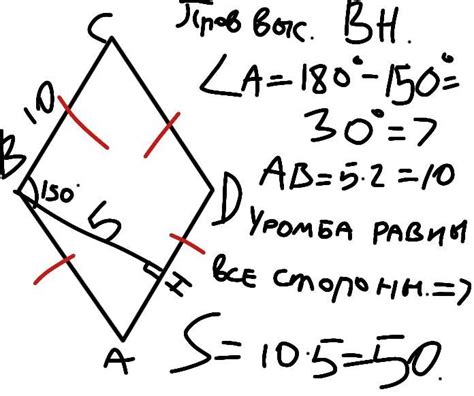 Пров выс. BH.
∠A=180°-150°=
30°=>
AB=5·2=10
У РОМБА РАВНЫ
ВСЕ СТОРОНЫ.=>
S=10·5=50.
C
10
B
150°
5
D
H
A